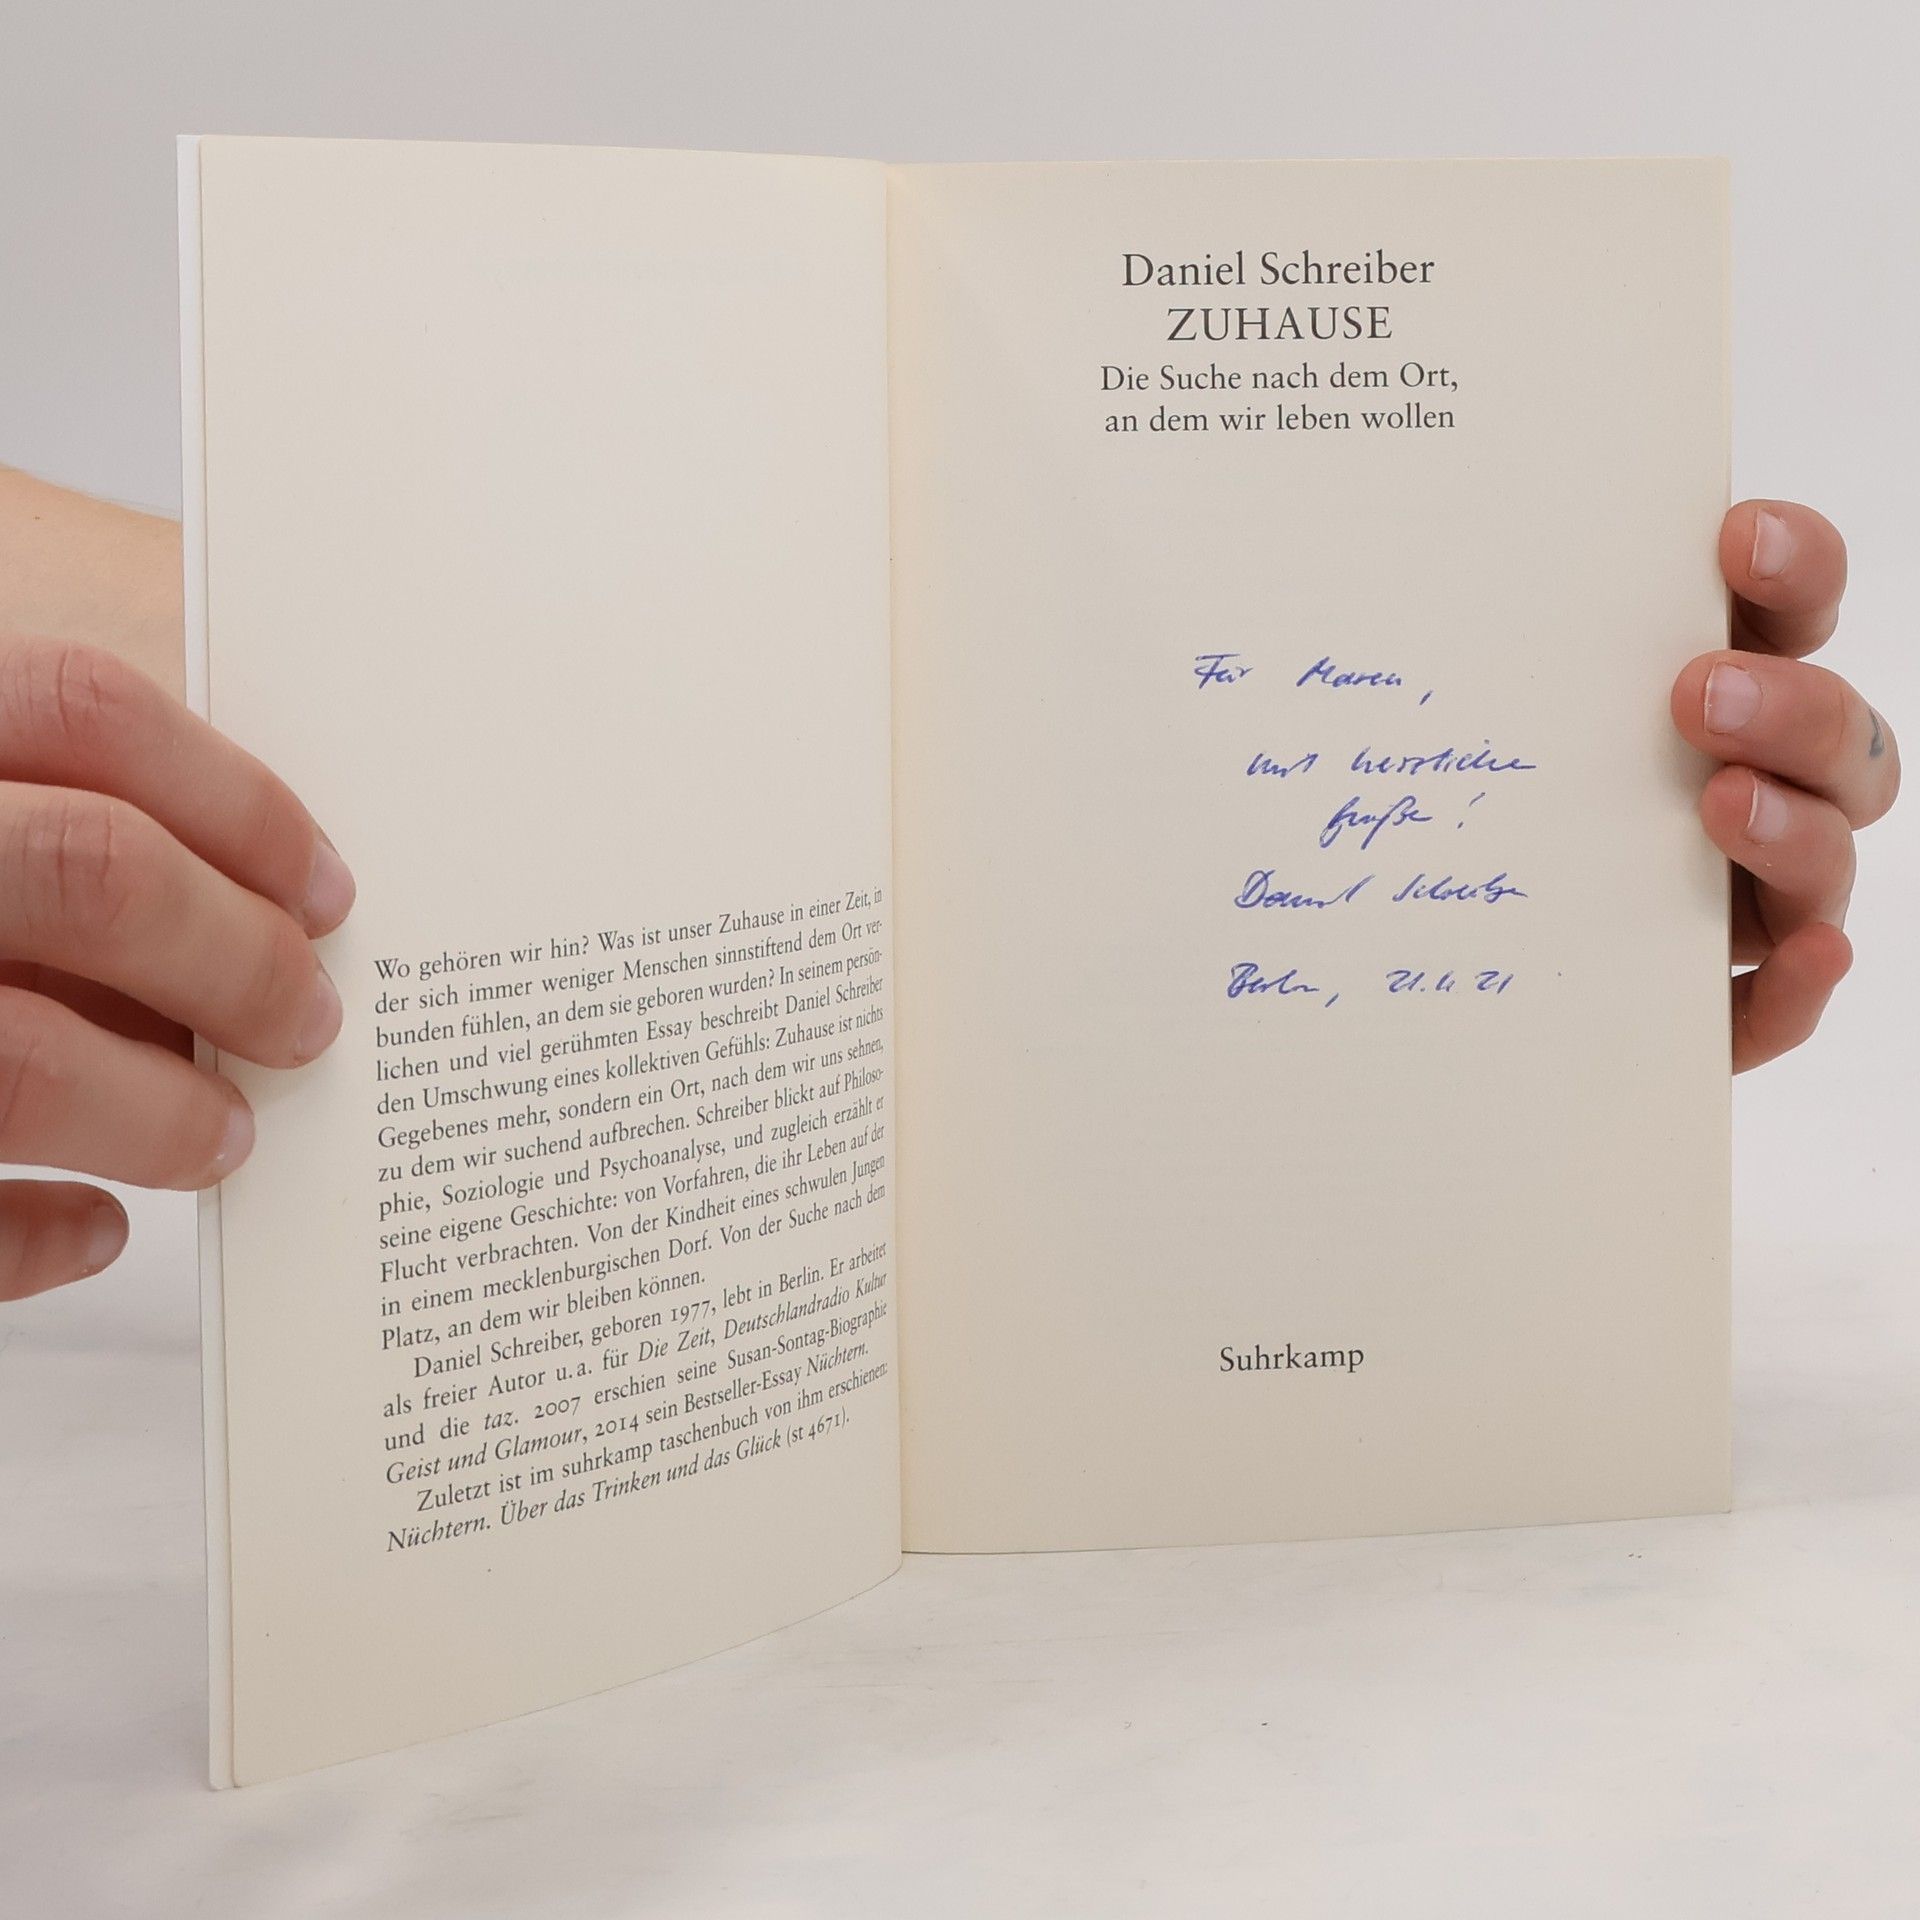 Wo gehören wir hin? Was ist unser Zuhause in einer Zeit, in
der sich immer weniger Menschen sinnstiftend dem Ort ver-
bunden fühlen, an dem sie geboren wurden? In seinem persön-
lichen und viel gerühmten Essay beschreibt Daniel Schreiber
den Umschwung eines kollektiven Gefühls: Zuhause ist nichts
Gegebenes mehr, sondern ein Ort, nach dem wir uns sehnen,
zu dem wir suchend aufbrechen. Schreiber blickt auf Philoso-
phie, Soziologie und Psychoanalyse, und zugleich erzählt er
seine eigene Geschichte: von Vorfahren, die ihr Leben auf der
Flucht verbrachten. Von der Kindheit eines schwulen Jungen
in einem mecklenburgischen Dorf. Von der Suche nach dem
Platz, an dem wir bleiben können.
Daniel Schreiber, geboren 1977, lebt in Berlin. Er arbeitet
als freier Autor u. a. für Die Zeit, Deutschlandradio Kultur
und die taz. 2007 erschien seine Susan-Sontag-Biographie
Geist und Glamour, 2014 sein Bestseller-Essay Nüchtern.
Zuletzt ist im suhrkamp taschenbuch von ihm erschienen:
Nüchtern. Über das Trinken und das Glück (st 4671).
Daniel Schreiber
ZUHAUSE
Die Suche nach dem Ort,
an dem wir leben wollen
Für Maren,
mit herzliche
Grüße!
Daniel Schreiber
Berlin, 21.11 21
Suhrkamp